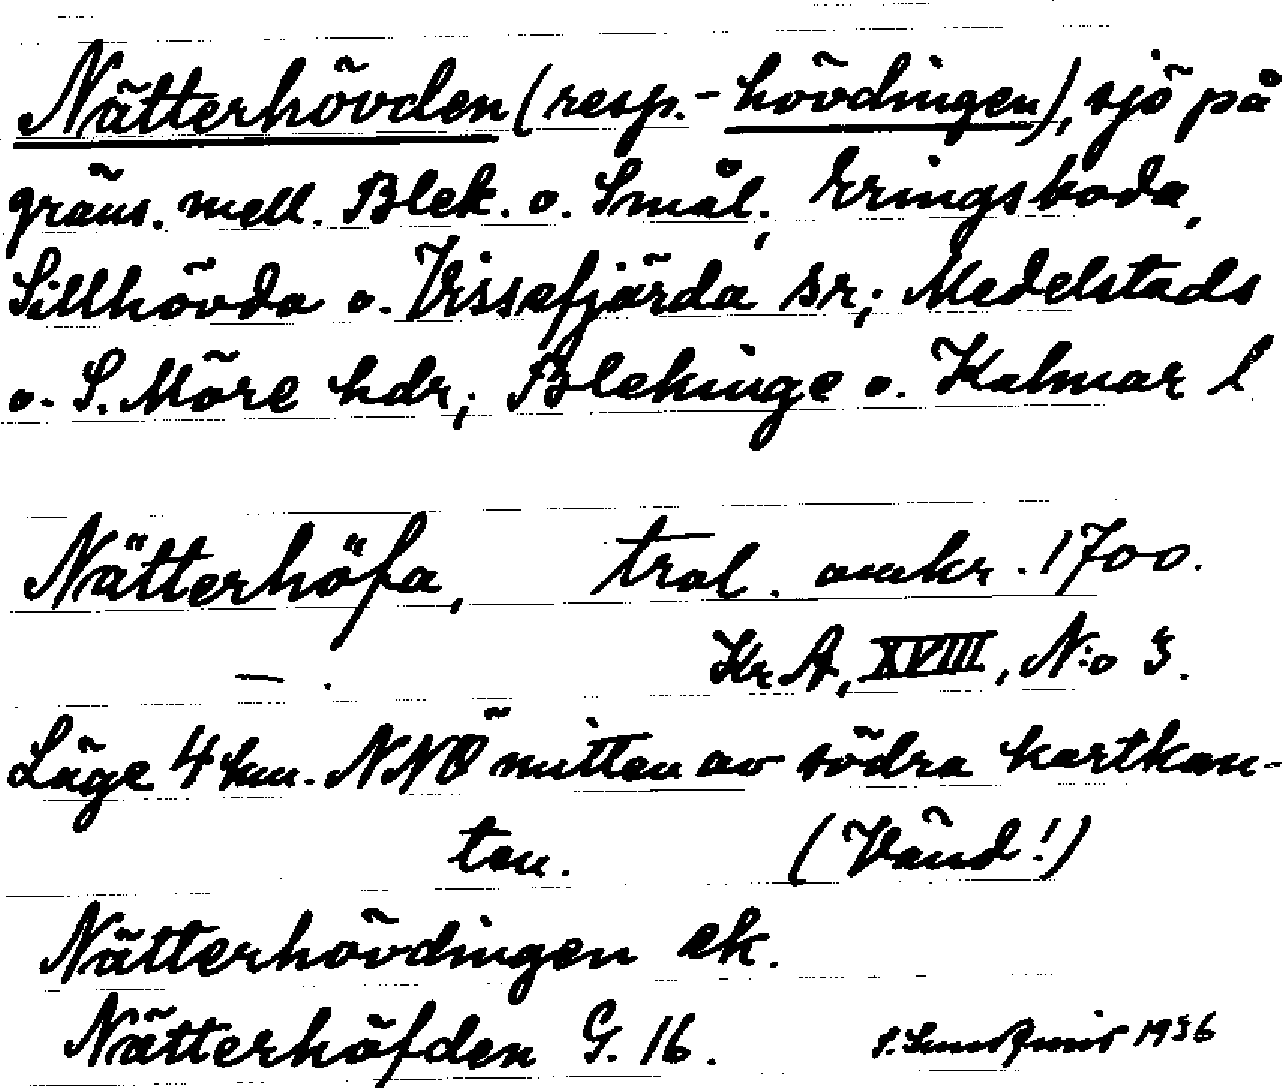 Nätterhövden (resp.-hövdingen), sjö på
gräns. mell. Blek. o. Smål., Eringsboda,
Sillhövda o. Vissefjärda sr; Medelstads
o. S. Möre hdr; Blekinge o. Kalmar l
Nätterhöfa, tral. omkr. 1700.
— . Kr A, XVIII, N:o 3.
Läge 4 km. NNÖ mitten av södra kartkan-
ten. (Vänd!)
Nätterhövdingen ek.
Nätterhöfden G. 16. 1936